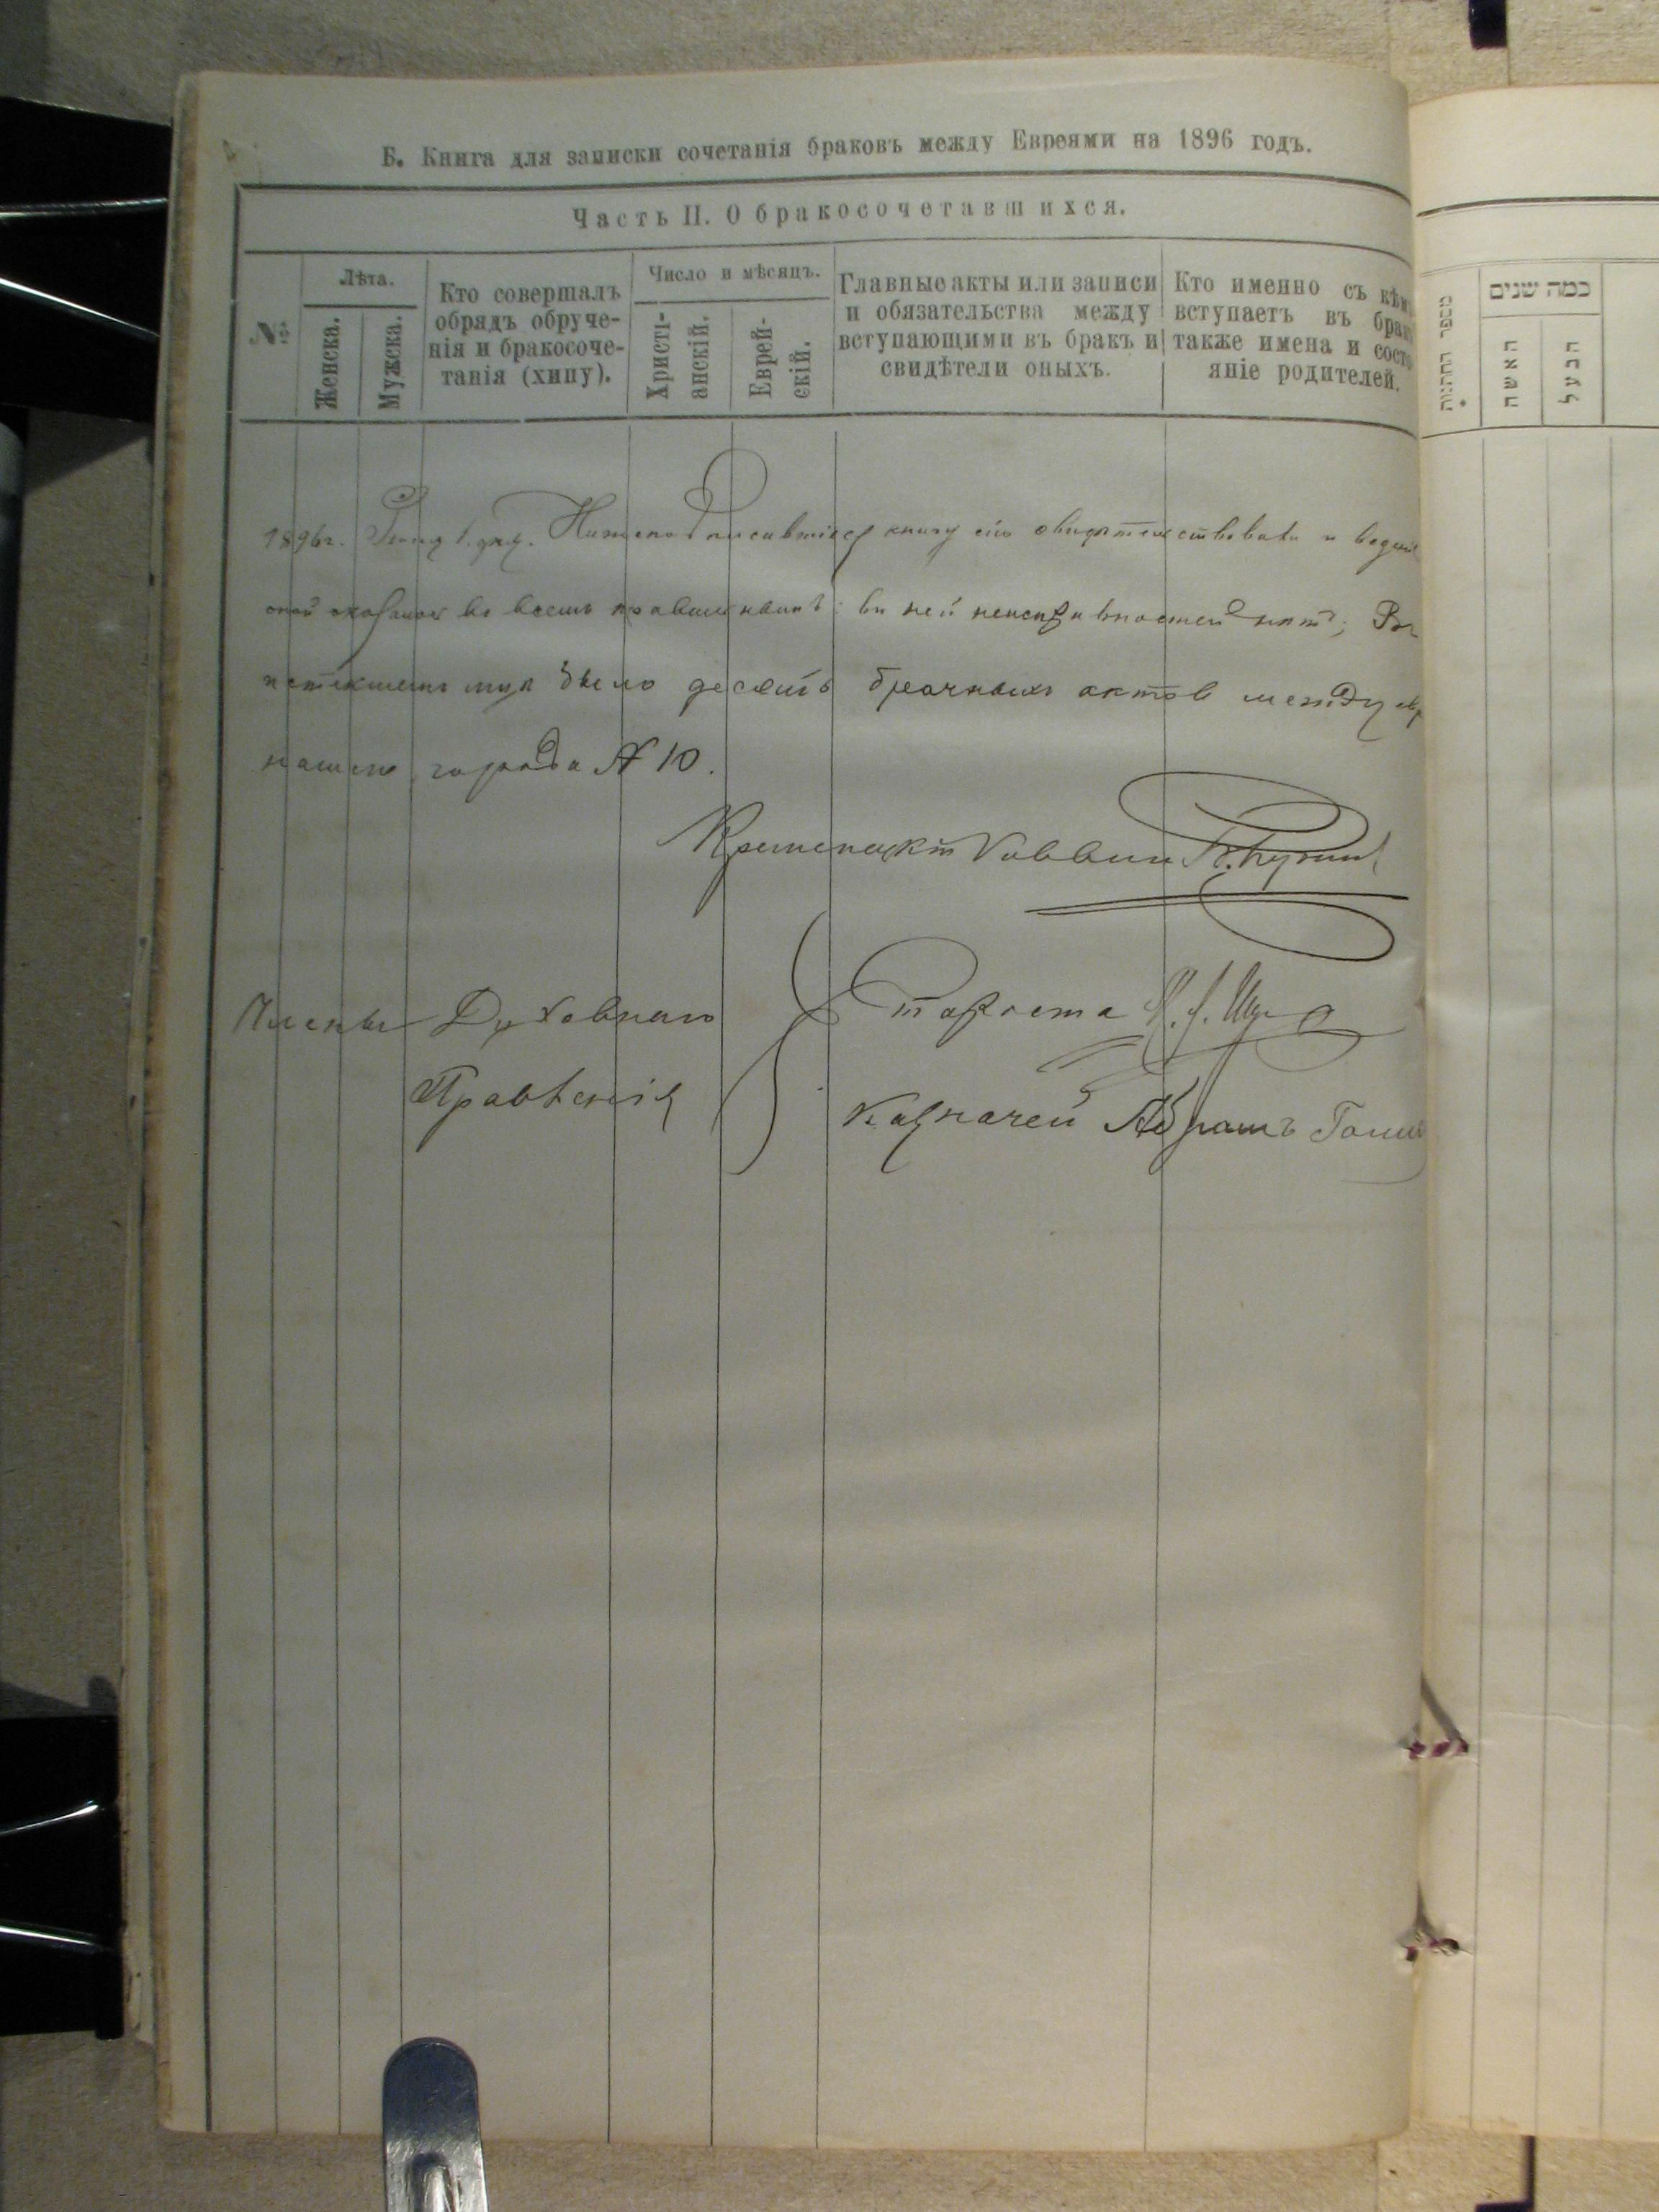 Б. Книга для записки сочетанія браковъ между Евреями на 1896 годъ.
Часть II. О бракосочетавшихся.
№
Лѣта.
Женска.
Мужска.
Кто совершалъ
обрядъ обруче-
нія и бракосоче-
танія (хипу).
Число и мѣсяцъ.
Христі-
анскій.
Еврей-
скій.
Главные акты или записи
и обязательства между
вступающими въ бракъ и
свидѣтели оныхъ.
Кто именно съ кѣмъ
вступаетъ въ бракъ
также имена и состо
яніе родителей.
1896г. 1. дня. Нижеподписавшіеся книгу сію свидѣтельствовали и
во всемъ правильнымъ: въ ней неисправностей нѣтъ;
истекшемъ было десять брачныхъ актов между
нашего города № 10.
Раввин
Члены Духовнаго
Правленія
Староста
Казначей Абрамъ
מספר החתנות
כמה שנים
האשה
הבעל